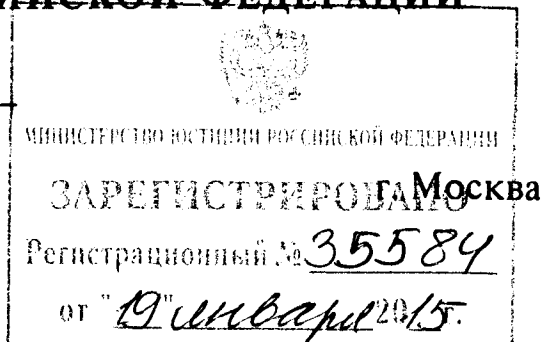 ИЙСКОЙ ФЕДЕРАЦИИ
МИНИСТЕРСТВО ЮСТИЦИИ РОССИЙСКОЙ ФЕДЕРАЦИИ
ЗАРЕГИСТРИРОВАНО
г. Москва
Регистрационный № 35584
от "19" января 2015г.